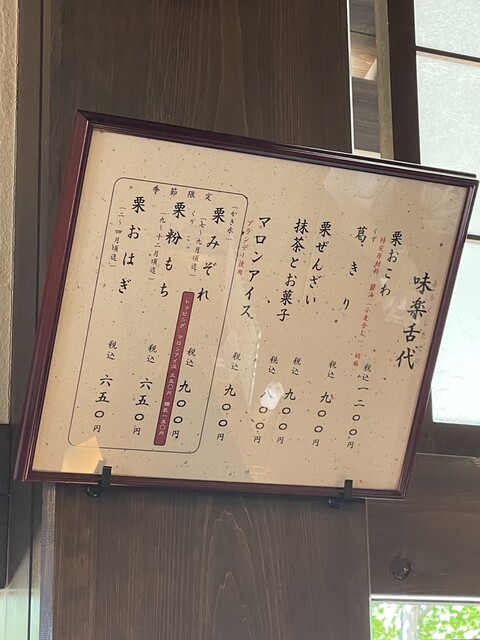 味楽舌代
栗おこわ 税込 一二〇〇円
特定原材料 醤油(小麦含む) 胡麻
くず
葛きり 税込 九〇〇円
栗ぜんざい 税込 九〇〇円
抹茶とお菓子 税込 八〇〇円
マロンアイス 税込 九〇〇円
ブランデー使用
季節限定
(かき氷)
栗みぞれ 税込 九〇〇円
(七〜九月頃迄)
トッピング マロンアイス 三五〇円 練乳一五〇円
くりこ
栗粉もち 税込 六五〇円
(九〜十二月頃迄)
栗おはぎ 税込 六五〇円
(二〜四月頃迄)